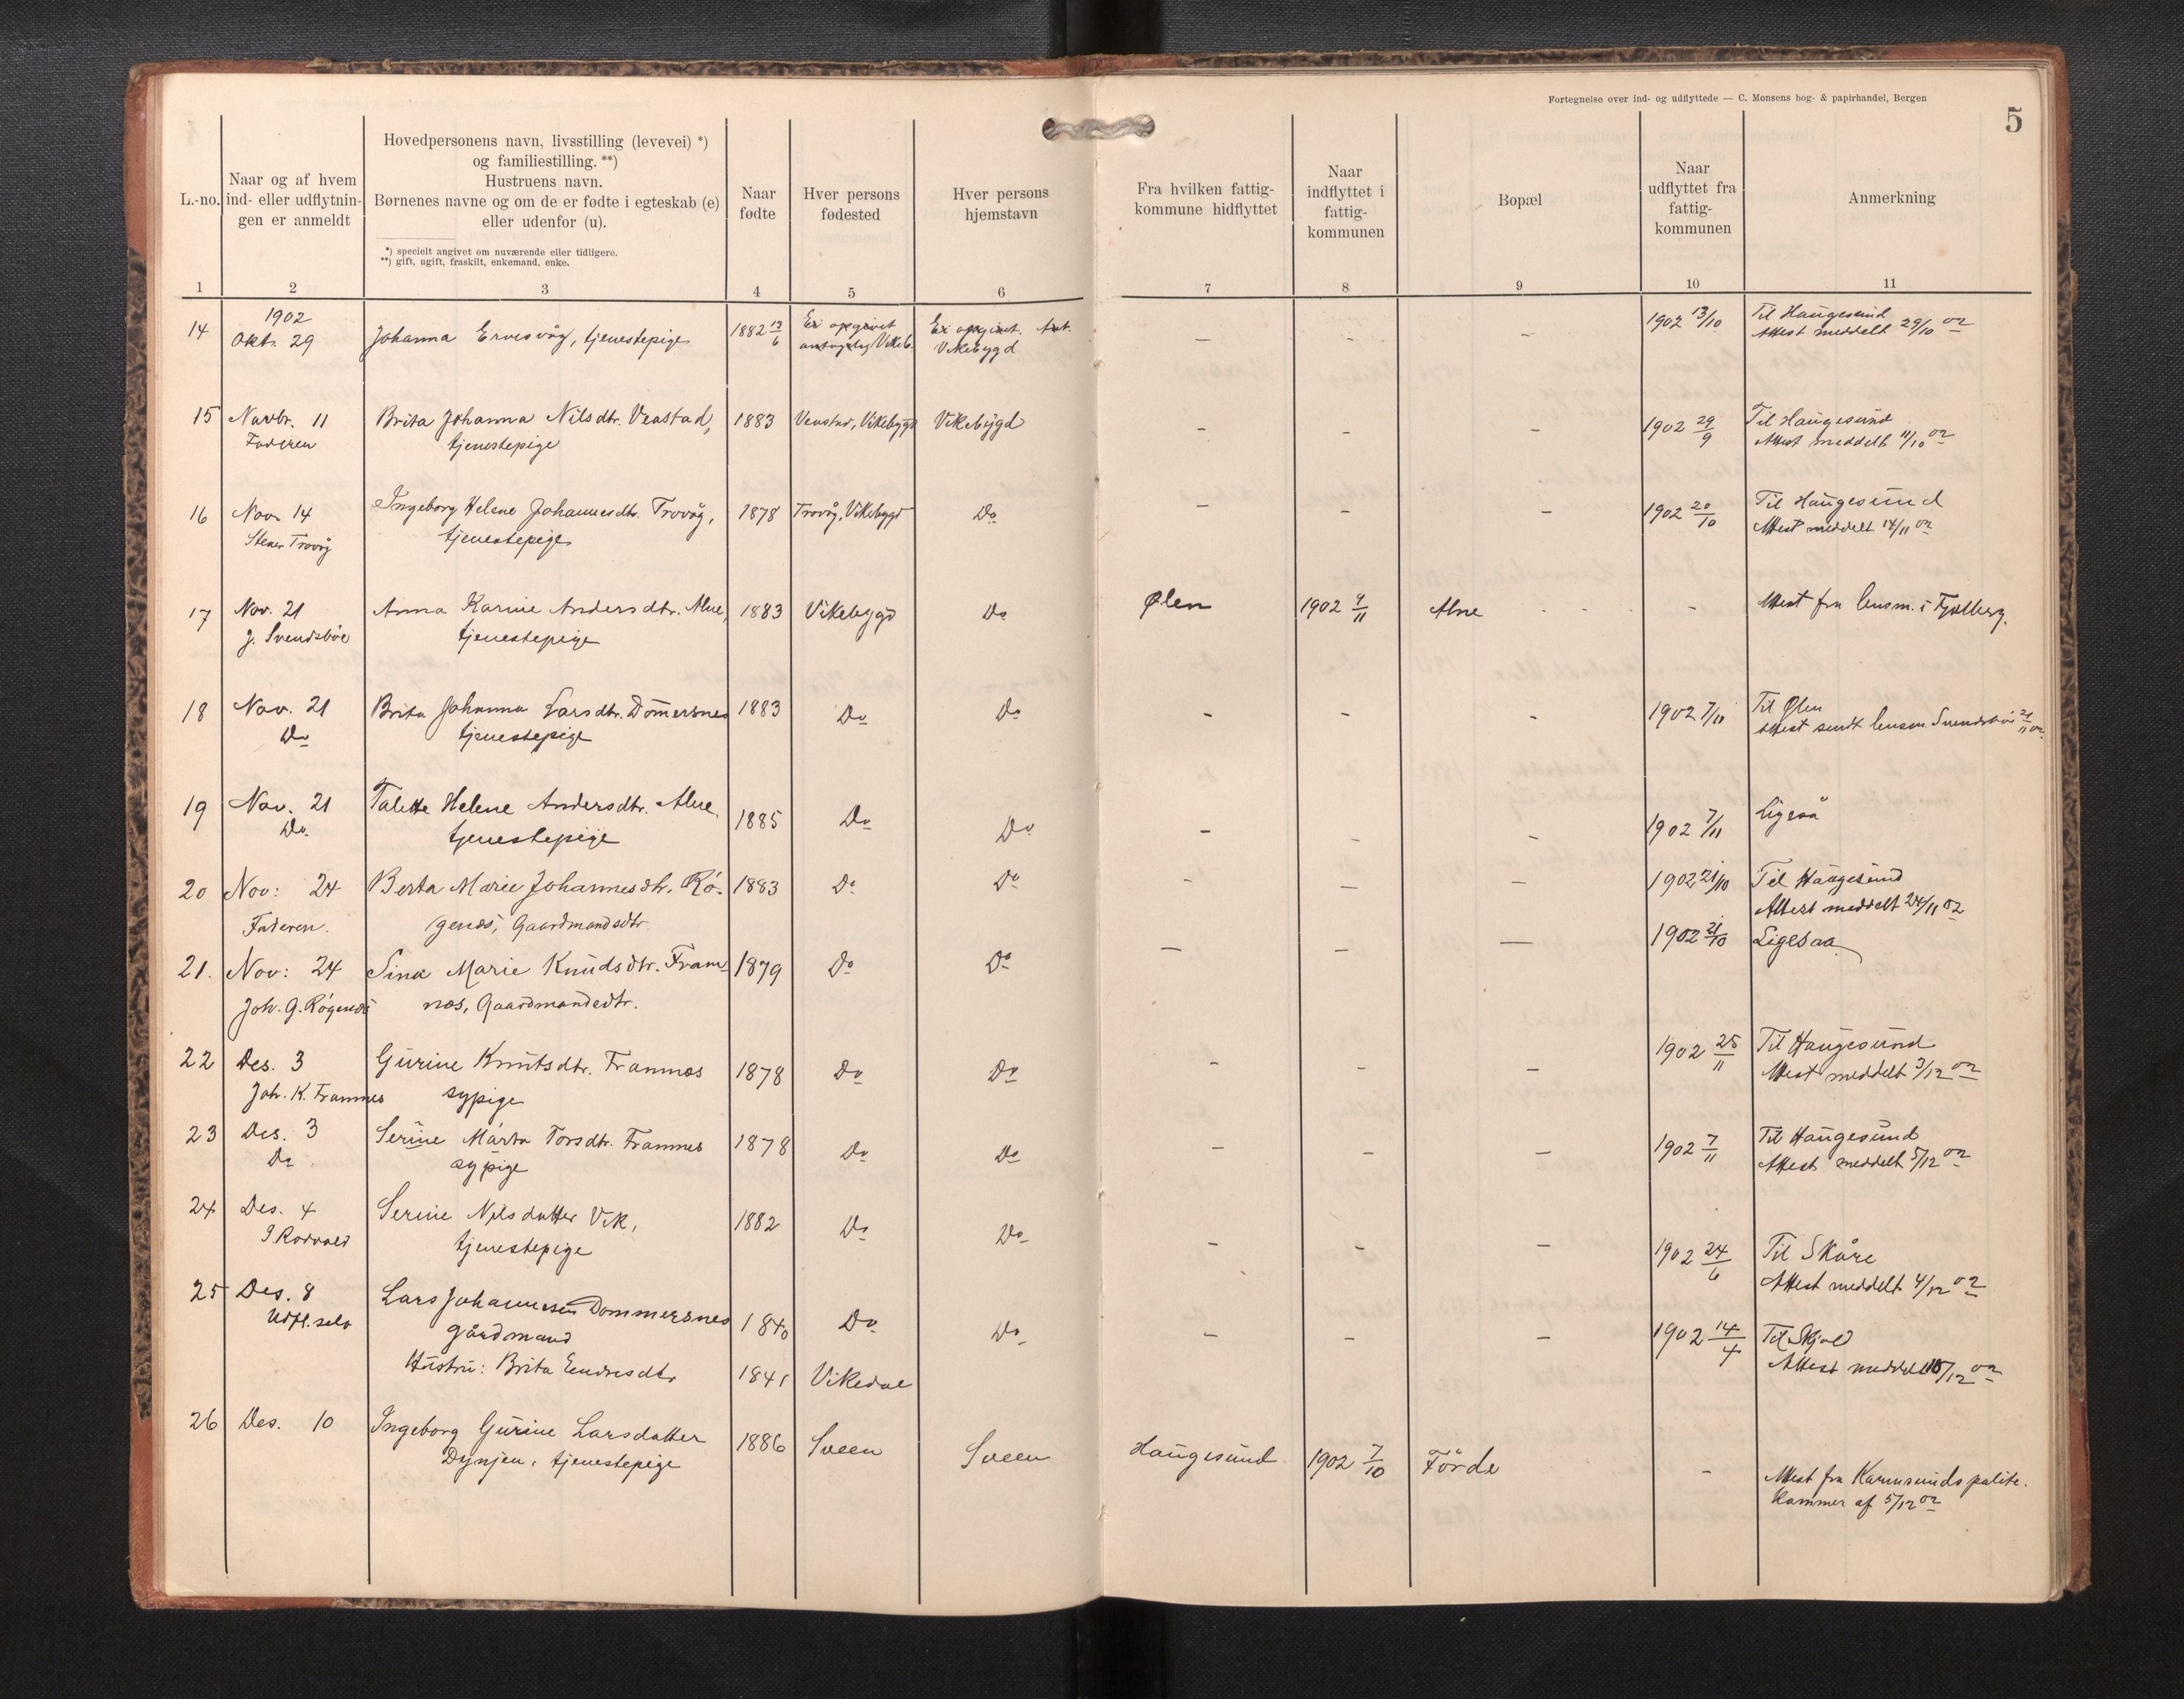 Fortegnelse over ind- og udflyttede — C. Monsens bog- & papirhandel, Bergen
5
L.-no.
Naar og af hvem
ind- eller udflytnin-
gen er anmeldt
Hovedpersonens navn, livsstilling (levevei) *)
og familiestilling. **)
Hustruens navn.
Børnenes navne og om de er fødte i egteskab (e)
eller udenfor (u).
*) specielt angivet om nuværende eller tidligere.
**) gift, ugift, fraskilt, enkemand, enke.
Naar
fødte
Hver persons
fødested
Hver persons
hjemstavn
Fra hvilken fattig-
kommune hidflyttet
Naar
indflyttet i
fattig-
kommunen
Bopæl
Naar
udflyttet fra
fattig-
kommunen
Anmerkning
1 2 3 4 5 6 7 8 9 10 11
1902
14 Oktr. 29 Johanna Ervesvåg, tjenestepige 1882 13/6 Ei opgivet Ei opgivet. Ant. — - - 1902 13/10 Til Haugesund
antagelig Vikeb. Vikebygd Attest meddelt 29/10 02
15 Novbr. 11 Brita Johanna Nilsdtr. Veastad, 1883 Veastad, Vikebygd Vikebygd - - - 1902 29/9 Til Haugesund
Faderen tjenestepige Attest meddelt 11/10 02
16 Novr 14 Ingeborg Helene Johannesdtr. Trovåg, 1878 Trovåg, Vikebygd Do - - - 1902 20/10 Til Haugesund
Trovåg tjenestepige Attest meddelt 14/11 02
17 Nov. 21 Anna Karine Andersdtr. Alne, 1883 Vikebygd Do Ølen 1902 4/11 Alne - Attest fra lensm. i Fjelberg.
J. Svendsbøe tjenestepige
18 Nov. 21 Brita Johanna Larsdtr. Dommersnes 1883 Do Do - - - 1902 7/11 Til Ølen
Do tjenestepige Attest sendt lensm. Svendsbøe 21/11 02.
19 Nov. 21 Talette Helene Andersdtr. Alne, 1885 Do Do - - - 1902 7/11 Ligeså
Do. tjenestepige
20 Nov: 24 Berta Marie Johannesdtr. Rø- 1883 Do Do - — — 1902 21/10 Til Haugesund
Faderen. genæs, Gaardmandsdtr. Attest meddelt 24/11 02
21. Nov: 24 Sina Marie Knudsdtr. Fram- 1879 Do Do — — — 1902 21/10 Ligesaa
Joh. G. Røgenæs næs, Gaardmandsdtr.
22 Des. 3 Gurine Knutsdtr. Framnes 1878 Do Do - - - 1902 25/11 Til Haugesund
Joh. K. Framnes sypige Attest meddelt 3/12 02
23 Des. 3 Serine Márta Torsdtr. Framnes 1878 Do Do - - - 1902 7/11 Til Haugesund
Do sypige Attest meddelt 5/12 02
24 Des. 4 Serine Nilsdatter Vik, 1882 Do Do - - - 1902 24/6 Til Skåre
tjenestepige Attest meddelt 4/12 02
25 Des. 8 Lars Johannesen Dommersnes 1840 Do Do - - - 1902 14/4 Til Skjold
Udfl. selv gårdmand Attest meddelt 10/12 02
Hustru: Brita Endresdtr 1841 Vikedal
26 Des. 10 Ingeborg Gurine Larsdatter 1886 Sveen Sveen Haugesund 1902 7/10 Førde - Attest fra Karmsunds polite.
Dynjen, tjenestepige kammer af 5/12 02